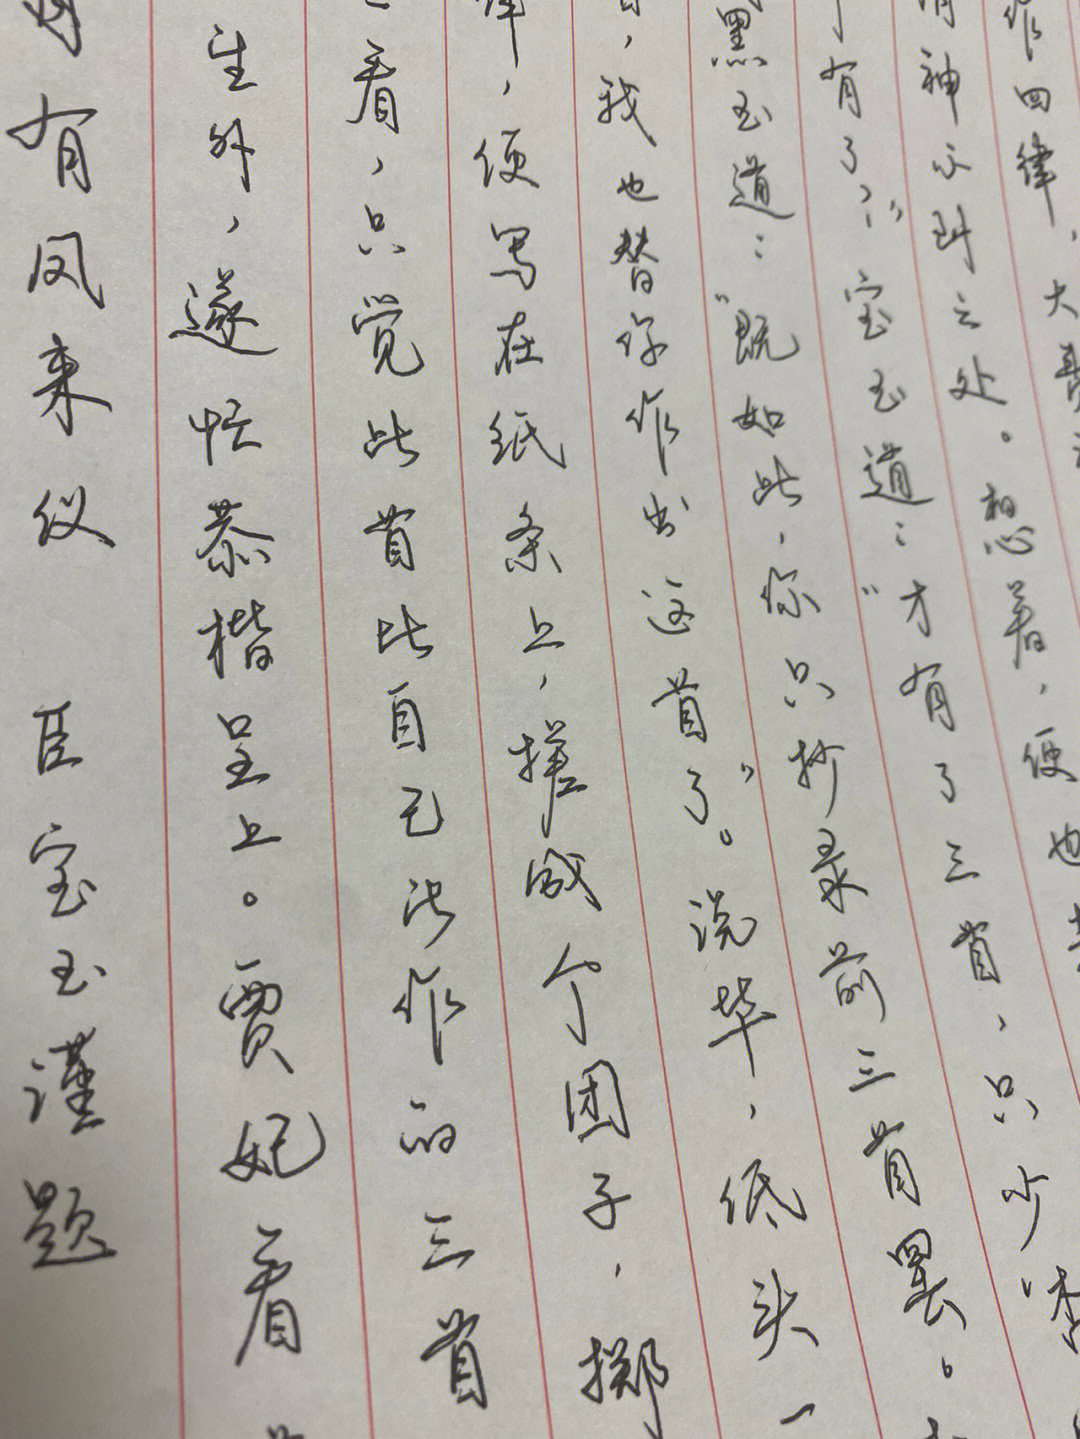 作四律，大
神不到之处。想着，便也
有了？”宝玉道：“才有了三首，只少“杏
黑玉道：“既如此，你只抄录前三首罢。
，我也替你作出这首了”。说毕，低头一
律，便写在纸条上，搓成个团子，掷
看，只觉此首比自己所作的三首
生外，遂忙恭楷呈上。贾妃看
有凤来仪 臣宝玉谨题